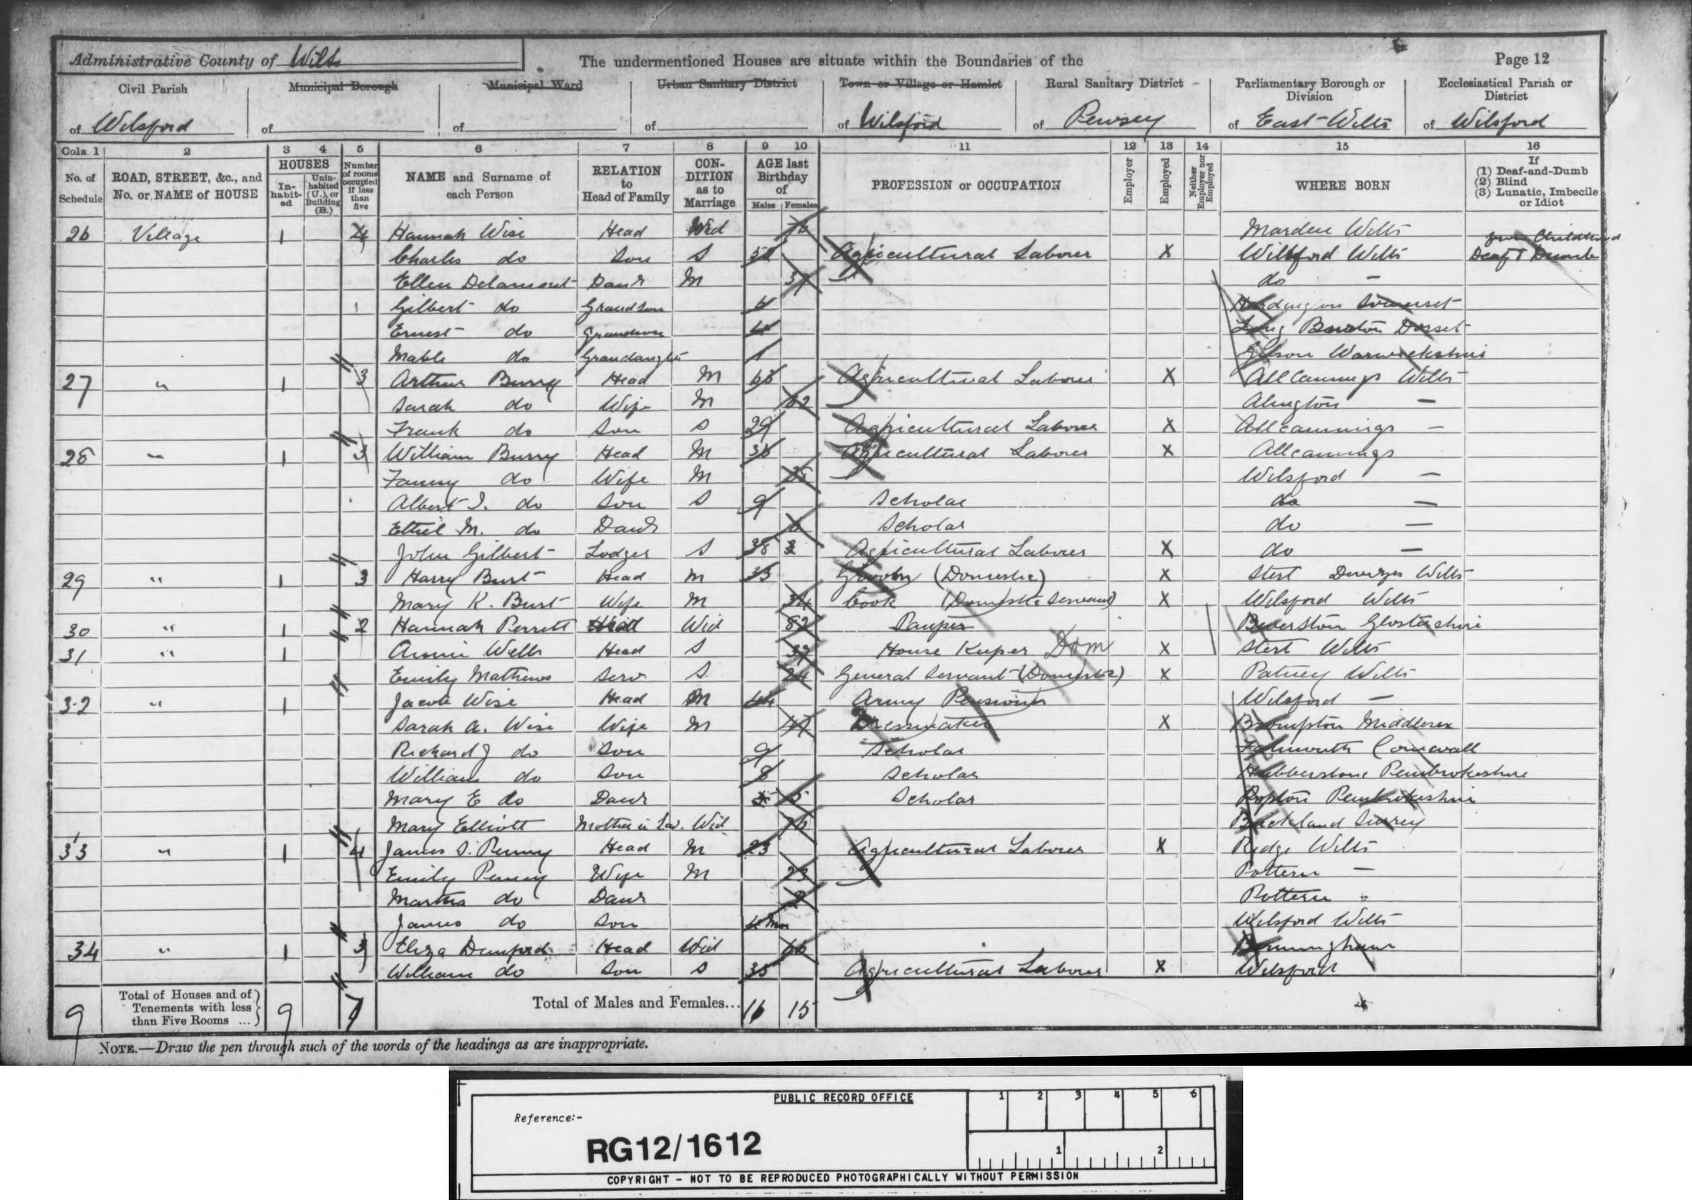 Administrative County of Wilts
The undermentioned Houses are situate within the Boundaries of the
Page 12
Civil Parish
of Wilsford
Municipal Borough
of
Municipal Ward
of
Urban Sanitary District
of
Town or Village or Hamlet
of Wilsford
Rural Sanitary District
of Pewsey
Parliamentary Borough or Division
of East Wilts
Ecclesiastical Parish or District
of Wilsford
Cols. 1 2 3 4 5 6 7 8 9 10 11 12 13 14 15 16
No. of Schedule
ROAD, STREET, &c., and No. or NAME of HOUSE
HOUSES
In-habit-ed
Unin-habited (U.), or Building (B.)
Number of rooms occupied if less than five
NAME and Surname of each Person
RELATION to Head of Family
CON-DITION as to Marriage
AGE last Birthday of
Males Females
PROFESSION or OCCUPATION
Employer
Employed
Neither Employer nor Employed
WHERE BORN
If
(1) Deaf-and-Dumb
(2) Blind
(3) Lunatic, Imbecile or Idiot
26 Village 1 4 Hannah Wise Head Wid Marden Wilts
Charles do Son S Agricultural Laborer X Wilsford Wilts Deaf & Dumb from Childhood
Ellen Delamont Daur M do —
Gilbert do Grandson Somerset
Ernest do Grandson Long Burton Dorset
Mable do Grandaughter 1 Warwickshire
27 " 1 3 Arthur Burry Head M 63 Agricultural Laborer X Allcannings Wilts
Sarah do Wife M 62 —
Frank do Son S 29 Agricultural Laborer X Allcannings —
28 " 1 3 William Burry Head M 36 Agricultural Laborer X Allcannings
Fanny do Wife M Wilsford —
Albert J. do Son S 9 Scholar do —
Ethel M. do Daur Scholar do —
John Gilbert Lodger S 38 Agricultural Laborer X do —
29 " 1 3 Harry Burt Head M 33 Groom (Domestic) X Stert Devizes Wilts
Mary K. Burt Wife M 34 Cook (Domestic Servant) X Wilsford Wilts
30 " 1 2 Hannah Perrett Head Wid 82 Pauper Glostershire
31 " 1 Annie Wells Head S House Keeper Dom X Stert Wilts
Emily Mathews Serv S 24 General Servant (Domestic) X Patney Wilts
32 " 1 Jacob Wise Head M 44 Army Pensioner Wilsford —
Sarah A. Wise Wife M Dressmaker X Brompton Middlesex
Richard J do Son 9 Scholar Falmouth Cornwall
William do Son 8 Scholar Hubberstone Pembrokeshire
Mary E do Daur 5 Scholar Popton Pembrokeshire
Mary Elliott Mother in Law. Wid Buckland Surrey
33 " 1 4 James S. Penny Head M 23 Agricultural Laborer X Ridge Wilts
Emily Penny Wife M 23 Pottern —
Martha do Daur Pottern "
James do Son Wilsford Wilts
34 " 1 3 Eliza Dumford Head Wid 66 Birmingham
William do Son S 35 Agricultural Laborer X Wilsford
9 Total of Houses and of Tenements with less than Five Rooms ... 9 7 Total of Males and Females... 16 15
NOTE.—Draw the pen through such of the words of the headings as are inappropriate.
PUBLIC RECORD OFFICE
1 2 3 4 5 6
Reference:-
RG12/1612
1 2
COPYRIGHT - NOT TO BE REPRODUCED PHOTOGRAPHICALLY WITHOUT PERMISSION